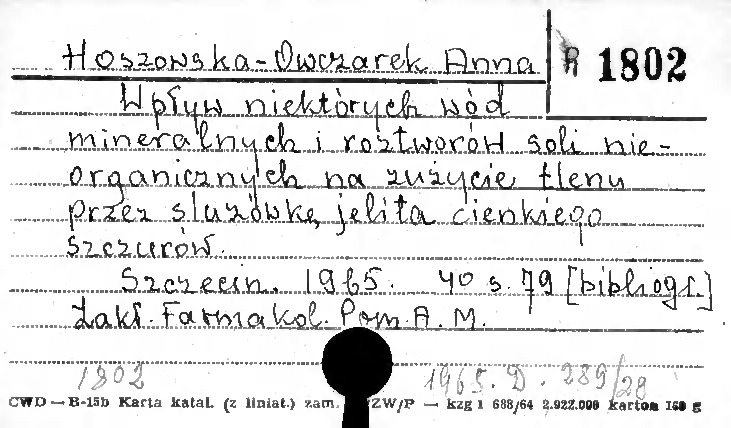 Hoszowska-Owczarek Anna R 1802
Wpływ niektórych wód
mineralnych i roztworów soli nie-
organicznych na zużycie tlenu
przez śluzówkę jelita cienkiego
szczurów.
Szczecin. 1965. 40 s. 79 [bibliogr.]
Zakł. Farmakol. Pom. A. M.
1802 1965. D. 289/28
CWD — B-15b Karta katal. (z liniat.) zam. ZW/P — kzg 1 688/64 2.922.000 karton 160 g